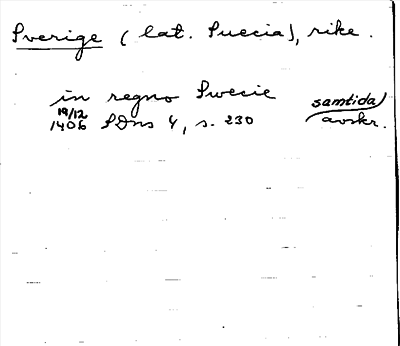 Sverige (lat. Suecia), rike.
in regno Swecie
samtida
19/12
1406 SDns 4, s. 230 avskr.